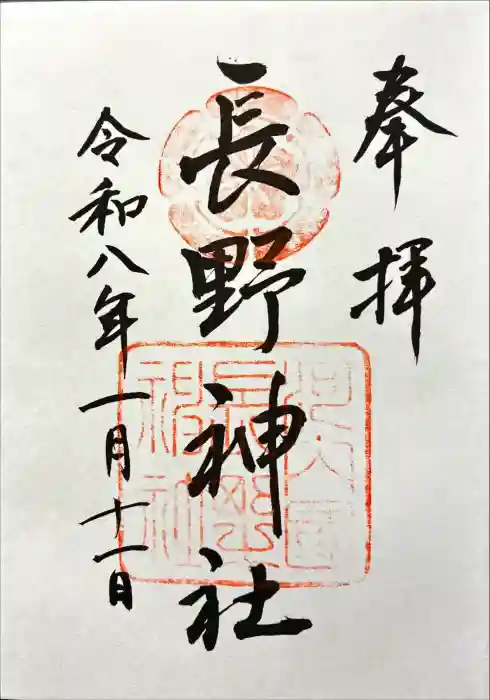 奉拝
長野神社
令和八年一月十一日